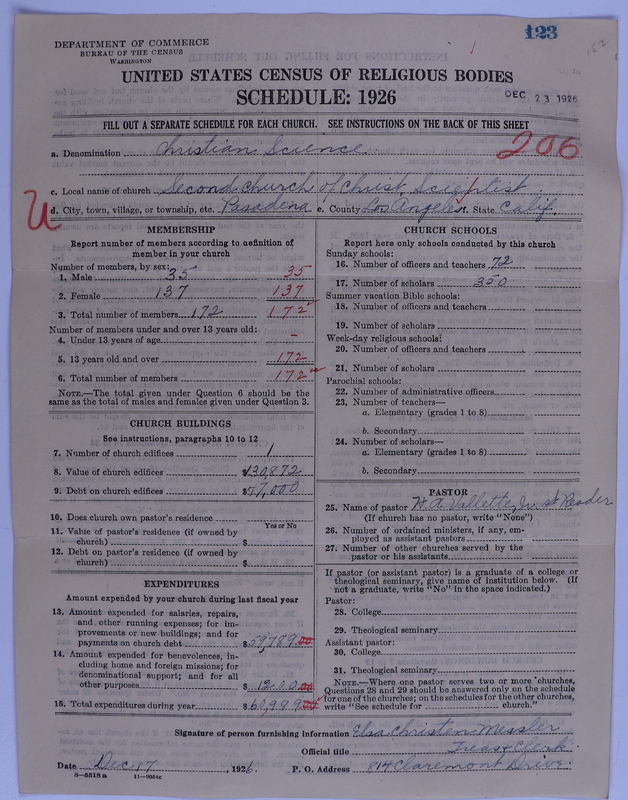 123
DEPARTMENT OF COMMERCE
BUREAU OF THE CENSUS
WASHINGTON
UNITED STATES CENSUS OF RELIGIOUS BODIES
SCHEDULE: 1926
DEC 23 1926
FILL OUT A SEPARATE SCHEDULE FOR EACH CHURCH. SEE INSTRUCTIONS ON THE BACK OF THIS SHEET
206
a. Denomination Christian Science
c. Local name of church Second Church of Christ, Scientist
U
d. City, town, village, or township, etc. Pasadena e. County Los Angeles f. State Calif.
MEMBERSHIP
Report number of members according to definition of
member in your church
Number of members, by sex:
1. Male 35 35
2. Female 137 137
3. Total number of members 172 172
Number of members under and over 13 years old:
4. Under 13 years of age –
5. 13 years old and over 172
6. Total number of members 172
NOTE.—The total given under Question 6 should be
same as the total of males and females given under Question 3.
CHURCH BUILDINGS
See instructions, paragraphs 10 to 12
7. Number of church edifices 1
8. Value of church edifices $130,872
9. Debt on church edifices $57,000
10. Does church own pastor's residence
Yes or No
11. Value of pastor's residence (if owned by
church) $
12. Debt on pastor's residence (if owned by
church) $
EXPENDITURES
Amount expended by your church during last fiscal year
13. Amount expended for salaries, repairs,
and other running expenses; for im-
provements or new buildings; and for
payments on church debt $59,789.00
14. Amount expended for benevolences, in-
cluding home and foreign missions; for
denominational support; and for all
other purposes $1200.00
15. Total expenditures during year $60,989.00
CHURCH SCHOOLS
Report here only schools conducted by this church
Sunday schools:
16. Number of officers and teachers 72
17. Number of scholars 350
Summer vacation Bible schools:
18. Number of officers and teachers
19. Number of scholars
Week-day religious schools:
20. Number of officers and teachers
21. Number of scholars
Parochial schools:
22. Number of administrative officers
23. Number of teachers—
a. Elementary (grades 1 to 8)
b. Secondary
24. Number of scholars—
a. Elementary (grades 1 to 8)
b. Secondary
PASTOR
25. Name of pastor H. A. Vallette, Jr. 1st Reader
(If church has no pastor, write "None")
26. Number of ordained ministers, if any, em-
ployed as assistant pastors
27. Number of other churches served by the
pastor or his assistants
If pastor (or assistant pastor) is a graduate of a college or
theological seminary, give name of institution below. (If
not a graduate, write "No" in the space indicated.)
Pastor:
28. College
29. Theological seminary
Assistant pastor:
30. College
31. Theological seminary
NOTE.—Where one pastor serves two or more churches,
Questions 28 and 29 should be answered only on the schedule
for one of the churches; on the schedules for the other churches,
write "See schedule for church."
Signature of person furnishing information Elsa Christen Messler
Official title Treas & Clerk
Date Dec. 17, 1926. P. O. Address 814 Claremont Drive.
8—5518 a 11—9054c